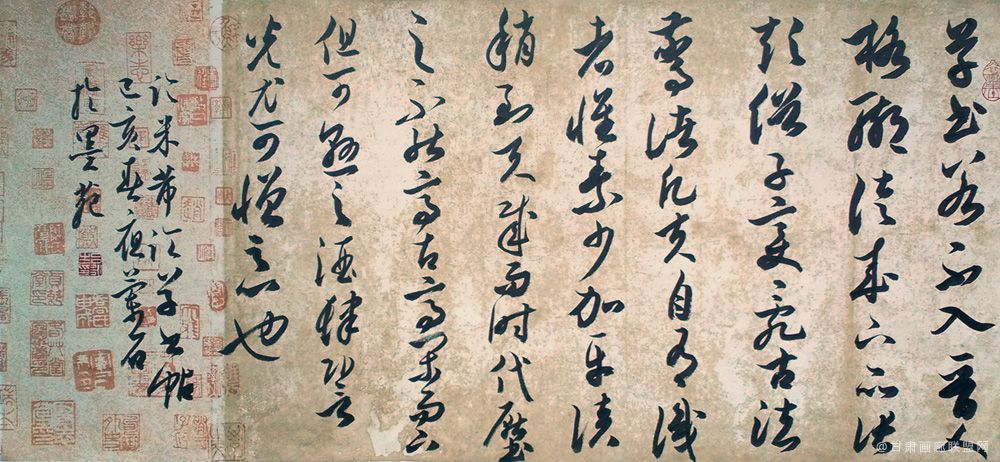 草书若不入晋人
格辄徒成下品张
颠俗子变乱古法
惊诸凡夫自有识
者怀素少加平淡
稍到天成而时代压
之不能高古高闲而下
但可悬之酒肆䛒
光尤可憎恶也
临米芾论草书帖
己亥春夜兰石
于墨苑
@甘肃画廊联盟网